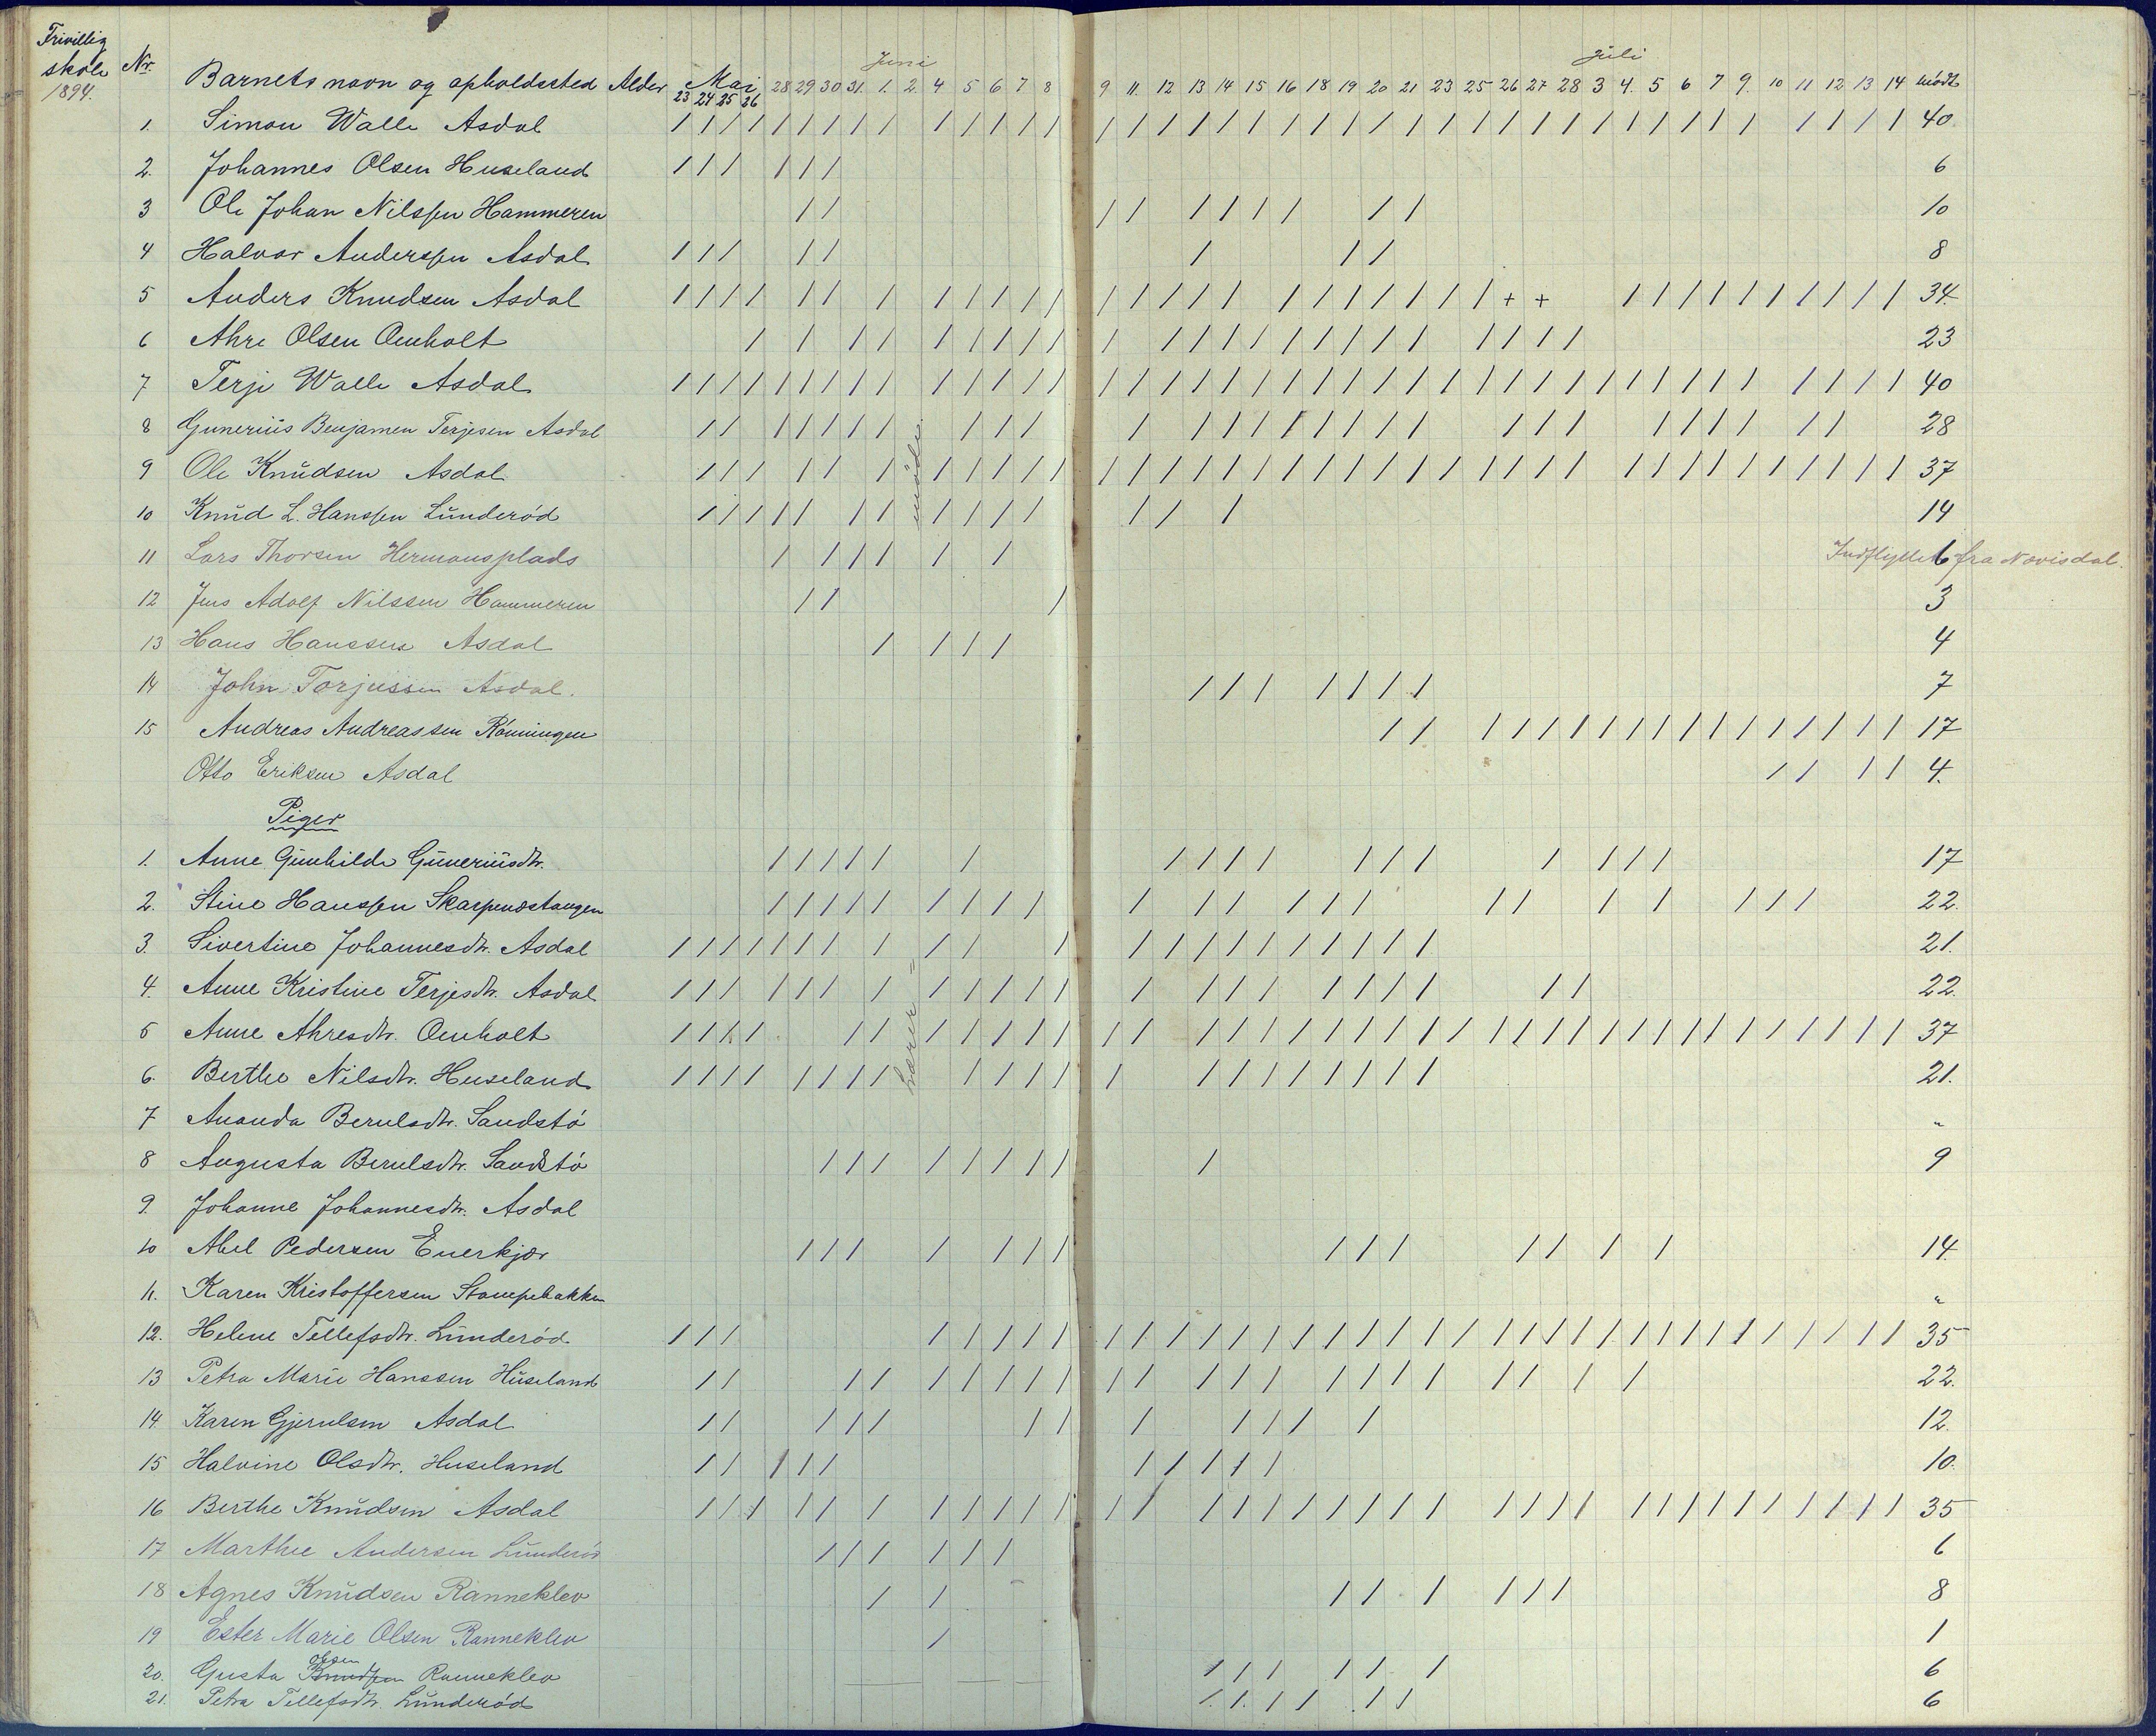 Frivillig
skole
1894.
Nr. Barnets navn og opholdssted Alder Mai Juni Juli
23 24 25 26 28 29 30 31. 1. 2. 4 5 6 7 8 9 11. 12 13 14 15 16 18 19 20 21 23 25 26 27 28 3 4. 5 6 7 9. 10 11 12 13 14 mödt
1. Simon Walle Asdal / / / / / / / / / / / / / / / / / / / / / / / / / / / / / / / / / / / / / / / / 40.
2. Johannes Olsen Huseland / / / / / / 6
3 Ole Johan Nilssen Hammeren / / / / / / / / / / 10
4 Halvor Anderssen Asdal / / / / / / / / 8
5 Anders Knudsen Asdal / / / / / / / / / / / / / / / / / / / / / / / / / + + / / / / / / / / / / 34.
6 Ahre Olsen Omholt / / / / / / / / / / / / / / / / / / / / / / / 23
7 Terje Walle Asdal / / / / / / / / / / / / / / / / / / / / / / / / / / / / / / / / / / / / / / / / 40
8 Gunerius Benjamen Terjesen Asdal / / / / / / / / / / / / / / / / / / / / / / / / / / / / 28
9 Ole Knudsen Asdal / / / / / / / / / / / / / / / / / / / / / / / / / / / / / / / / / / / / / 37
10 Knud L. Hanssen Lunderöd / / / / / / / / / / / / / / 14
11 Lars Thorsen Hermansplads / / / / / / Indflyttet 6 fra Nævisdal.
12 Jens Adolf Nilssen Hammeren / / / 3
13 Hans Hanssen Asdal / / / / 4
14 John Torjussen Asdal. / / / / / / / 7
15 Andreas Andreassen Rönningen / / / / / / / / / / / / / / / / / 17
Otto Eriksen Asdal / / / / 4.
Piger
1. Anne Gunhilde Guneriusdtr. / / / / / / / / / / / / / / / / / 17
2. Stine Hanssen Skarpenæstangen / / / / / / / / / / / / / / / / / / / / / / 22.
3. Sivertine Johannesdtr. Asdal / / / / / / / / / / / / / / / / / / / / / 21.
4. Anne Kristine Terjesdtr. Asdal / / / / / / / / / / / / / / / / / / / / / / 22.
5 Anne Ahresdtr. Omholt / / / / / / / / / / / / / / / / / / / / / / / / / / / / / / / / / / / / / 37
6. Berthe Nilsdtr. Huseland / / / / / / / / / / / / / / / / / / / / / 21.
7 Ananda Berulsdtr. Sandstö "
8 Augusta Berulsdtr. Sandstö / / / / / / / / / 9
9. Johanne Johannesdtr. Asdal
10 Abel Pedersen Enerkjær / / / / / / / / / / / / / / 14.
11. Karen Kristoffersen Stampebakken "
12. Helene Tellefsdtr. Lunderöd / / / / / / / / / / / / / / / / / / / / / / / / / / / / / / / / / / / 35
13 Petra Marie Hanssen Huseland / / / / / / / / / / / / / / / / / / / / / / 22.
14. Karen Gjerulsen Asdal / / / / / / / / / / / / 12.
15 Halvine Olsdtr. Huseland / / / / / / / / / / 10.
16 Berthe Knudsen Asdal / / / / / / / / / / / / / / / / / / / / / / / / / / / / / / / / / / / 35
17 Marthe Andersen Lunderöd / / / / / / 6
18 Agnes Knudsen Ranneklev / / / / / / / / 8
19 Ester Marie Olsen Ranneklev / 1
20. Gusta Knudsen Olsen Ranneklev / / / / / / 6
21. Petra Tellefsdtr. Lunderöd / / / / / / 6
Lærer=
möde.